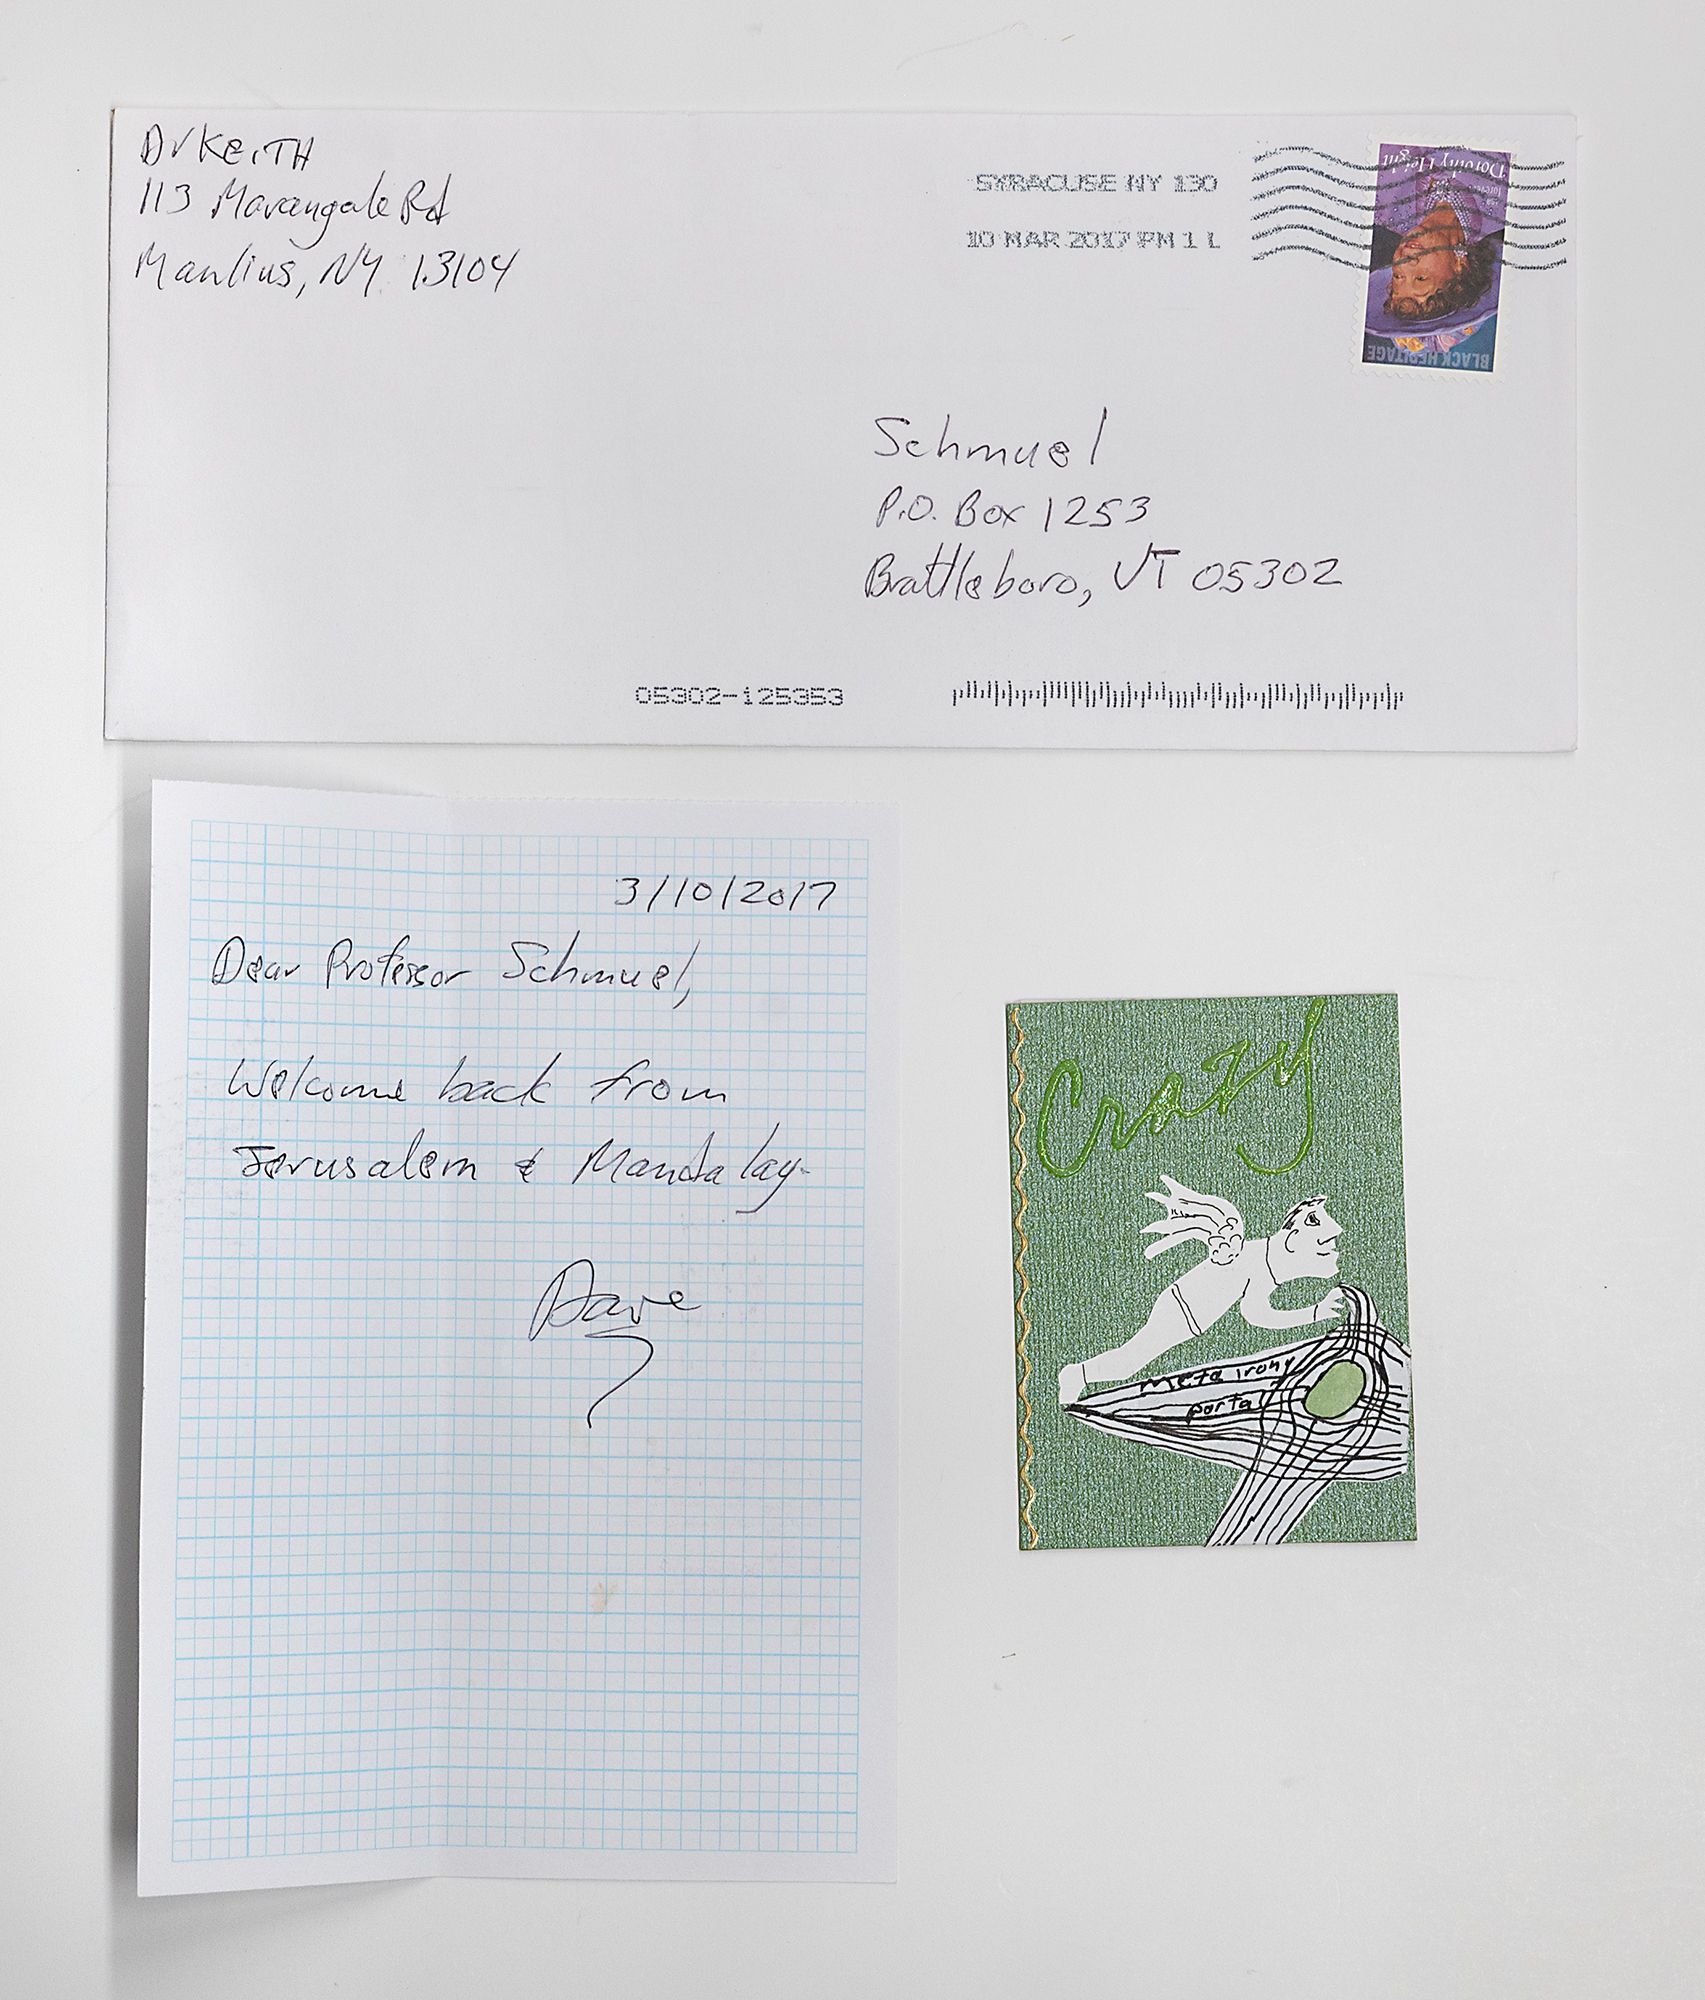 DVKeITH
113 Marangale Rd
Manlius, NY 13104
SYRACUSE NY 130
10 MAR 2017 PM 1 L
Dorothy Height
forever
USA
BLACK HERITAGE
Schmuel
P.O. Box 1253
Brattleboro, VT 05302
05302-125353
3/10/2017
Dear Professor Schmuel,
Welcome back from
Jerusalem & Mandalay-
Dave
Crazy
meta irony
portal